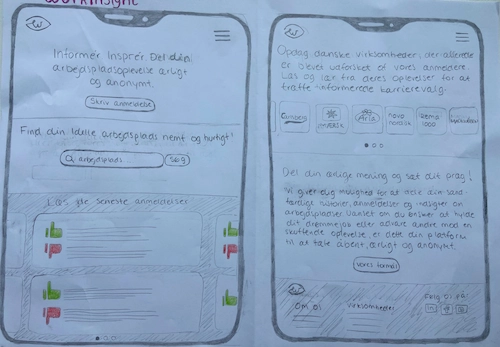 W
Informer. Inspirér. Del din
arbejdspladsoplevelse ærligt
og anonymt.
Skriv anmeldelse
Find din ideelle arbejdsplads nemt og hurtigt!
arbejdsplads
Søg
Læs de seneste anmeldelser
W
Opdag danske virksomheder, der allerede
er blevet udforsket af vores anmeldere.
Læs og lær fra deres oplevelser for at
træffe informerede karrierevalg.
Arla
novo
nordisk
rema
1000
Del din ærlige mening og sæt dit præg!
Vi giver dig mulighed for at dele din
arbejdspladser. Uanset om du ønsker at hylde
dit drømmejob eller advare andre mod en
skuffende oplevelse, er dette din platform
til at tale åbent, ærligt og anonymt.
Vores formål
Om os
Virksomheder
Følg os på:
in